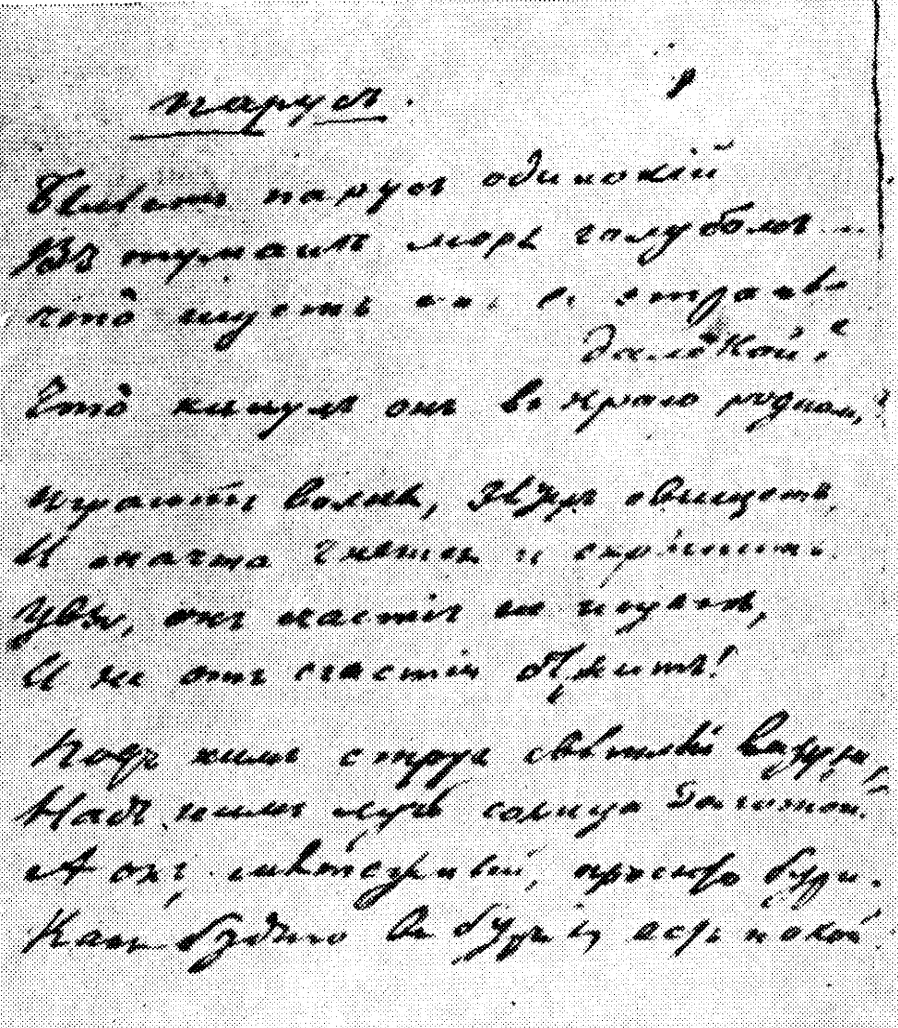 Парусъ.
Бѣлѣетъ парусъ одинокій
Въ туманѣ моря голубомъ...
Что ищетъ онъ въ странѣ
далекой?
Что кинулъ онъ въ краю родномъ?
Играютъ волны, вѣтръ свищетъ,
И мачта гнется и скрыпитъ..
Увы, онъ счастія не ищетъ,
И не отъ счастія бѣжитъ!
Подъ нимъ струя свѣтлѣй лазури,
Надъ нимъ лучъ солнца золотой:
А онъ, мятежный, проситъ бури.
Какъ будто въ буряхъ есть покой